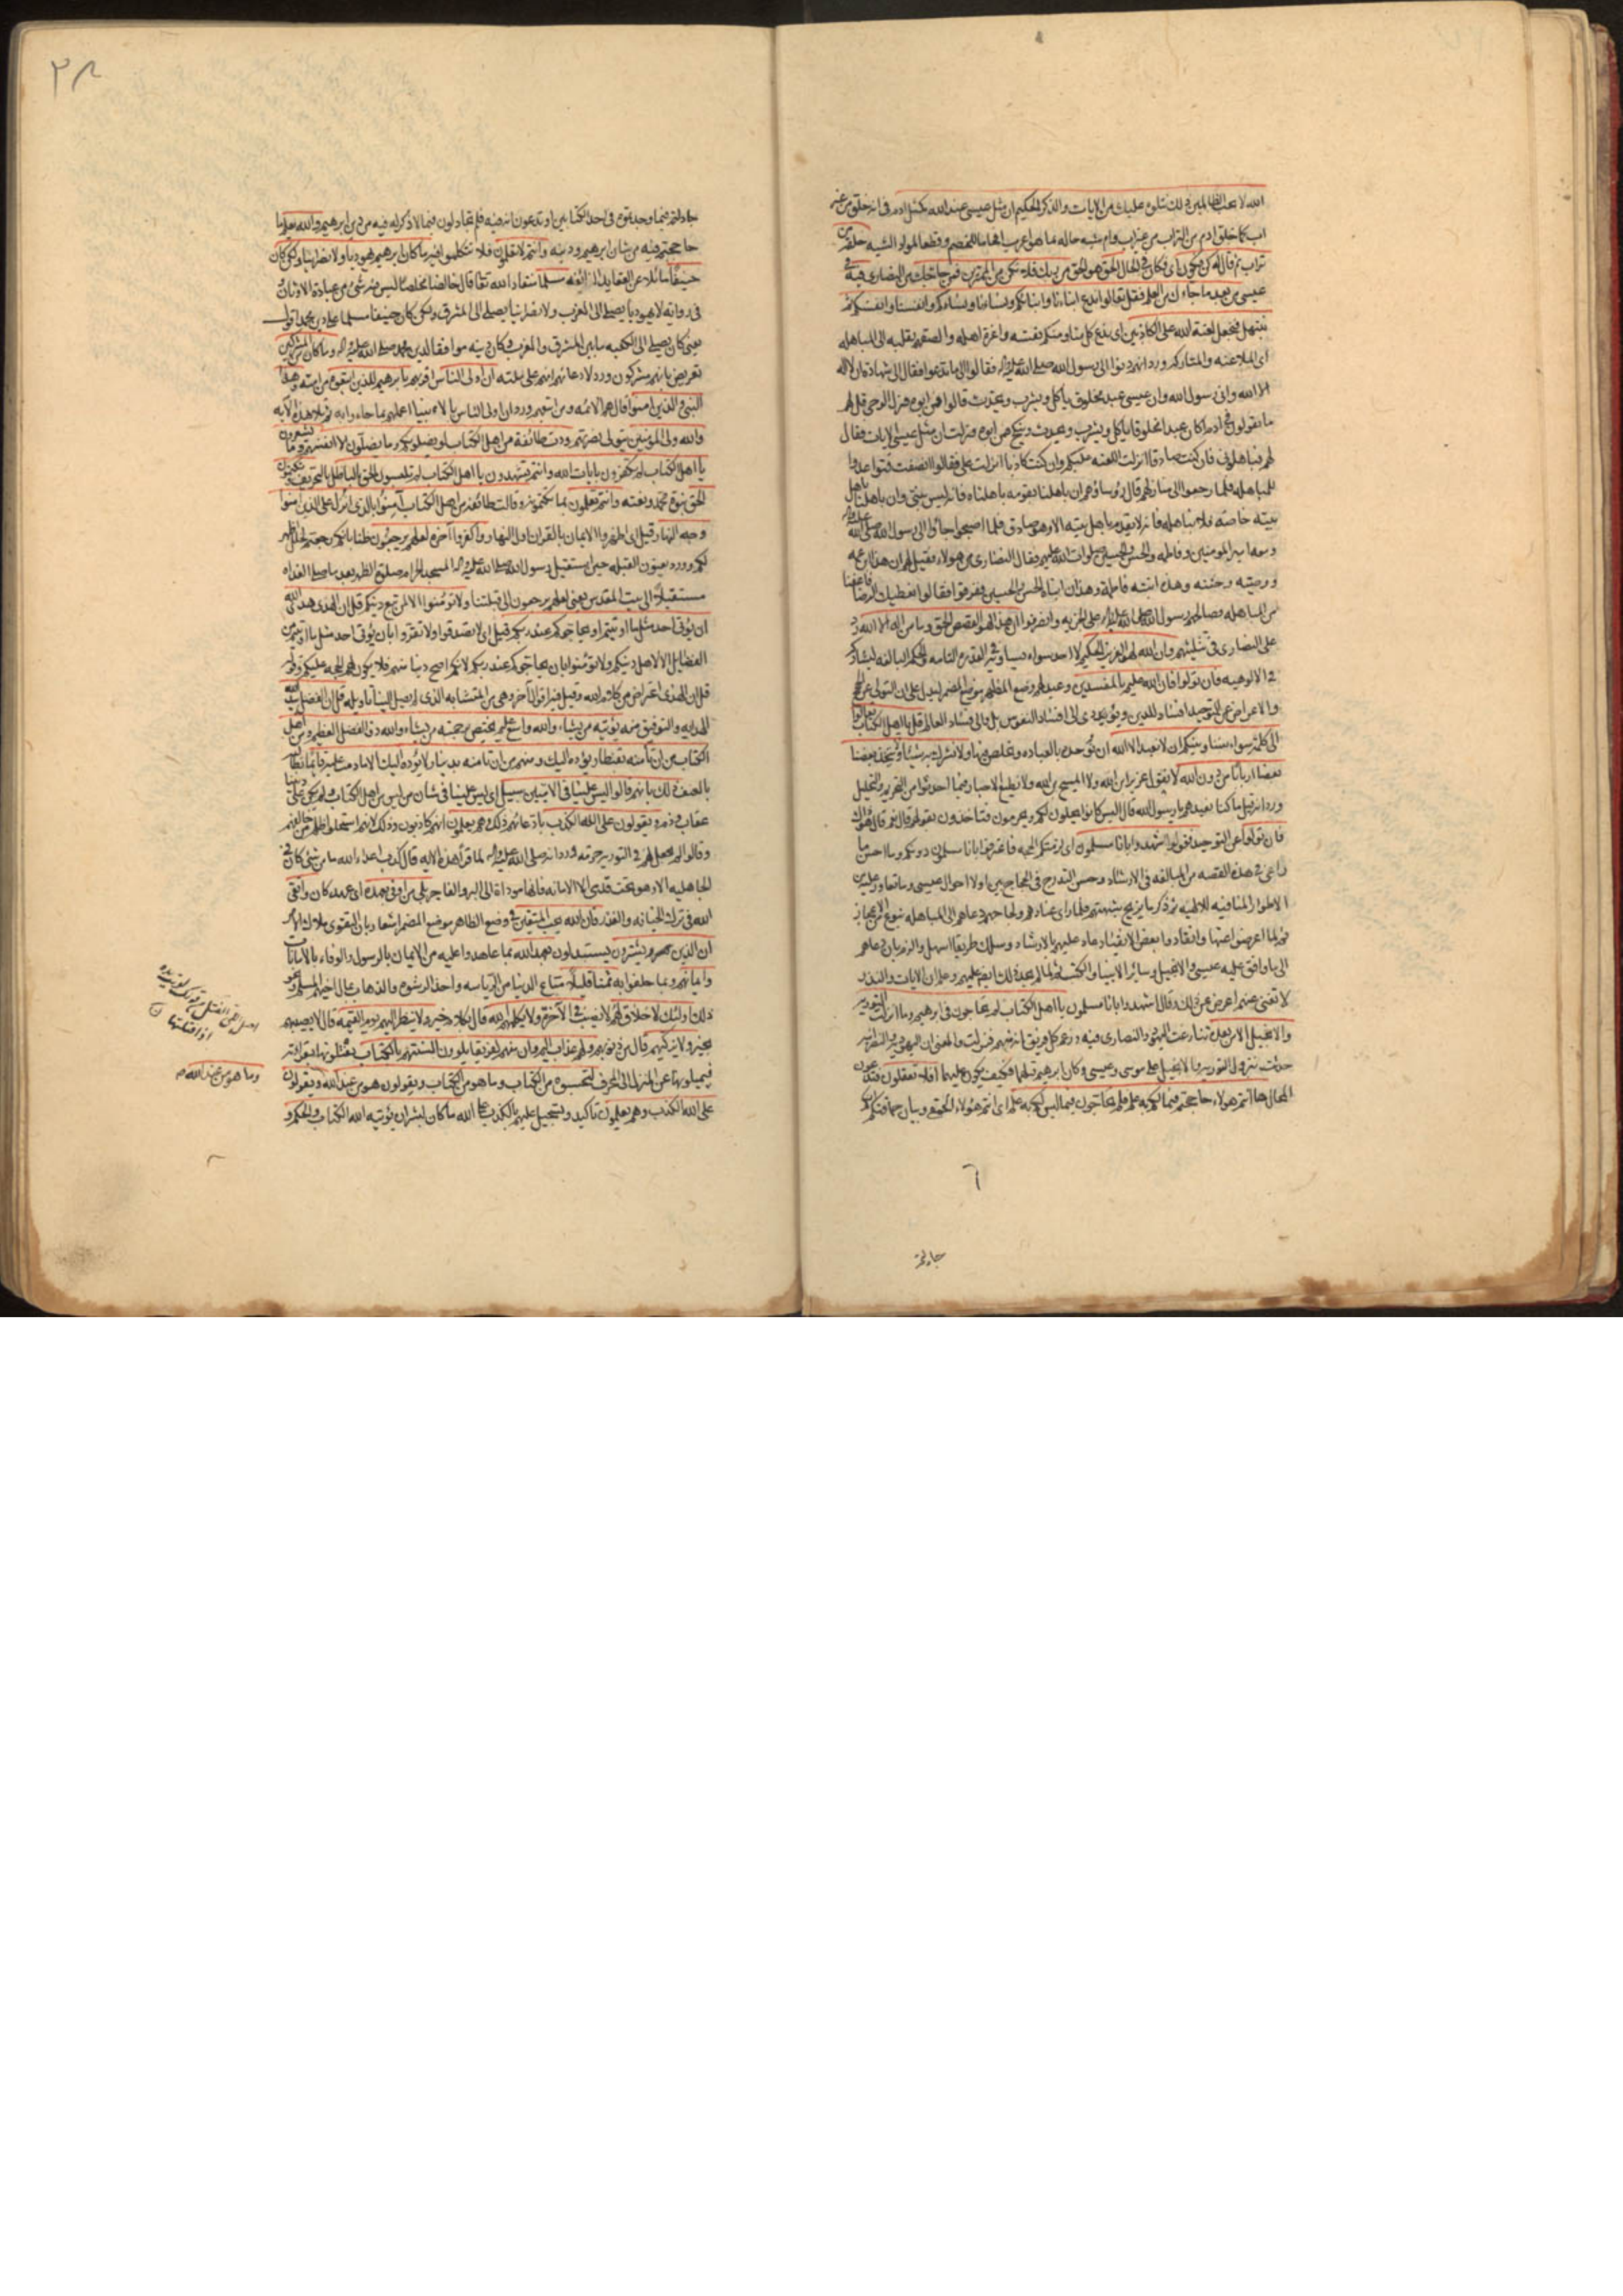 الله لا يحب الظالمين ذلك نتلوه عليك من الايات والذكر الحكيم ان مثل عيسى عند الله كمثل ادم في انه خلق من غير
اب كما خلق ادم من التراب من غير اب وام شبه حاله بما هو اغرب افحاما للخصم وقطعا لمواد الشبه خلقه من
تراب ثم قال له كن فيكون اى فكان في الحال الحق هو الحق من ربك فلا تكن من الممترين فمن حاجك من النصارى فيه في
عيسى من بعد ما جاءك من العلم فقل تعالوا ندع ابناءنا وابناءكم ونساءنا ونساءكم وانفسنا وانفسكم ثم
نبتهل فنجعل لعنة الله على الكاذبين اى يدع كل منا ومنكم نفسه واعزة اهله والصقهم بقلبه الى المباهلة
اى الملاعنه والمتاركه ورد انهم دنوا الى رسول الله صلى الله عليه واله فقالوا الى ما تدعو فقال الى شهادة ان لا اله
الا الله وانى رسول الله وان عيسى عبد مخلوق ياكل ويشرب ويحدث قالوا فمن ابوه فنزل الوحى قل لهم
ما تقولون في ادم اكان عبدا مخلوقا ياكل ويشرب ويحدث وينكح فمن ابوه فنزلت ان مثل عيسى الايات فقال
لهم فباهلونى فان كنت صادقا انزلت اللعنه عليكم وان كنت كاذبا انزلت على فقالوا انصفت فتواعدوا
للمباهله فلما رجعوا الى منازلهم قال رؤساؤهم ان باهلنا بقومه باهلناه فانه ليس بنبى وان باهلنا باهل
بيته خاصة فلا نباهله فانه لا يقدم باهل بيته الا وهو صادق فلما اصبحوا جاؤا الى رسول الله صلى الله عليه واله
ومعه امير المؤمنين وفاطمه والحسن والحسين صلوات الله عليهم فقال النصارى من هولاء فقيل لهم ان هذا ابن عمه
ووصيه وختنه وهذه ابنته فاطمة وهذان ابناه الحسن والحسين ففرقوا فقالوا نعطيك الرضا فاعفنا
من المباهله فصالحهم رسول الله صلى الله عليه واله على الجزيه وانصرفوا ان هذا لهو القصص الحق وما من اله الا الله رد
على النصارى في تثليثهم وان الله لهو العزيز الحكيم لا احد سواه يساويه في القدرة التامه والحكم البالغه ليشاركه
في الالوهيه فان تولوا فان الله عليم بالمفسدين وعيد لهم وضع المظهر موضع المضمر ليدل على ان التولى عن الحجج
والاعراض عن التوحيد افساد للدين ويؤدى الى افساد النفوس بل والى فساد العالم قل يا اهل الكتاب تعالوا
الى كلمة سواء بيننا وبينكم ان لا نعبد الا الله ان نوحده بالعباده ونخلص فيها ولا نشرك به شيئا ولا يتخذ بعضنا
بعضا اربابا من دون الله لا نقول عزير ابن الله ولا المسيح ابن الله ولا نطيع الاحبار فيما احدثوا من التحريم والتحليل
ورد انه قيل ما كنا نعبدهم يا رسول الله قال اليس كانوا يحلون لكم ويحرمون فتاخذون بقولهم قال نعم قال هو ذاك
فان تولوا عن التوحيد فقولوا اشهدوا بانا مسلمون اى لزمتكم الحجه فاعترفوا بانا مسلمون دونكم وما احسن ما
راعى في هذه القصه من المبالغه في الارشاد وحسن التدرج في الحجاج بين اولا احوال عيسى وما تعاور عليه من
الاطوار المنافيه للالهيه ثم ذكر ما يزيح شبهتهم فلما راى عنادهم ولجاجهم دعاهم الى المباهله بنوع من الاعجاز
ثم لما اعرضوا عنها وانقادوا بعض الانقياد عاد عليهم بالارشاد وسلك طريقا اسهل والزم بان دعاهم
الى ما وافق عليه عيسى والانجيل وسائر الانبيا والكتب ثم لما لم يجد ذلك ايضا عليهم وعلم ان الايات والنذر
لا تغنى عنهم اعرض عن ذلك وقال اشهدوا بانا مسلمون يا اهل الكتاب لم تحاجون في ابرهيم وما انزلت التورية
والانجيل الا من بعده تنازعت اليهود والنصارى فيه وزعم كل فريق انه منهم فنزلت والمعنى ان اليهودية والنصرانيه
حدثت بنزول التورية والانجيل على موسى وعيسى وكان ابرهيم قبلهما فكيف يكون عليهما افلا تعقلون فتدعون
المحال ها انتم هولاء حاججتم فيما لكم به علم فلم تحاجون فيما ليس لكم به علم اى انتم هؤلاء الحمقى وبيان حماقتكم انكم
٦
جادلتم
٣٨
جادلتم فيما وجدتموه في احد الكتابين او تدعون انه فيه فلم تجادلون فيما لا ذكر له فيه من دين ابرهيم والله يعلم ما
حاججتم فيه من شان ابرهيم ودينه وانتم لا تعلمون فلا تتكلموا فيه ما كان ابرهيم يهوديا ولا نصرانيا ولكن كان
حنيفا مائلا عن العقايد الزايغه مسلما منقادا لله تعا قال خالصا مخلصا ليس فيه شئ من عبادة الاوثان و
في رواية لا يهوديا يصلى الى المغرب ولا نصرانيا يصلى الى المشرق ولكن كان حنيفا مسلما على دين محمد اقول
يعنى كان يصلى الى الكعبه ما بين المشرق والمغرب وكان دينه موافقا لدين محمد صلى الله عليه واله وما كان من المشركين
تعريض بانهم مشركون ورد لادعائهم انهم على ملته ان اولى الناس اقربهم بابرهيم للذين اتبعوه من امته وهذا
النبى والذين امنوا قال هم الائمه ومن اتبعهم وورد ان اولى الناس بالانبيا اعملهم بما جاءوا به ثم تلا هذه الآيه
والله ولى المؤمنين يتولى نصرتهم ودت طائفة من اهل الكتاب لو يضلونكم وما يضلون الا انفسهم وما يشعرون
يا اهل الكتاب لم تكفرون بايات الله وانتم تشهدون يا اهل الكتاب لم تلبسون الحق بالباطل بالتحريف وتكتمون
الحق نبوة محمد ونعته وانتم تعلمون بما تكتمونه وقالت طائفة من اهل الكتاب آمنوا بالذى انزل على الذين امنوا
وجه النهار قيل اى اظهروا الايمان بالقران اول النهار واكفروا آخره لعلهم يرجعون ظنا بانكم رجعتم لخلل ظهر
لكم وورد يعنون القبله حين استقبل رسول الله صلى الله عليه واله المسجد الحرام صلوة الظهر بعد ما صلى الغداه
مستقبلا الى بيت المقدس يعنى لعلهم يرجعون الى قبلتنا ولا تؤمنوا الا لمن تبع دينكم قل ان الهدى هدى الله
ان يؤتى احد مثل ما اوتيتم او يحاجوكم عند ربكم قيل اى لا تصدقوا ولا تقروا بان يؤتى احد مثل ما اوتيتم من
الفضايل الا لاهل دينكم ولا تؤمنوا بان يحاجوكم عند ربكم لانكم اصح دينا منهم فلا يكون لهم الحجه عليكم وقوله
قل ان الهدى اعتراض من كلام الله وقيل فيه اقوال آخر وهى من المتشابه الذى لم يصل الينا تاويله قل ان الفضل بيد الله
الهدايه والتوفيق منه يؤتيه من يشاء والله واسع عليم يختص برحمته من يشاء والله ذو الفضل العظيم ومن اهل
الكتاب من ان تأمنه بقنطار يؤده اليك ومنهم من ان تامنه بدينار لا يؤده اليك الا ما دمت عليه قائما تطالبه
بالعنف ذلك بانهم قالوا ليس علينا في الاميين سبيل اى ليس علينا في شان من ليس من اهل الكتاب ولم يكن على ديننا
عقاب وذم ويقولون على الله الكذب بادعائهم ذلك وهم يعلمون انهم كاذبون وذلك لانهم استحلوا ظلم من خالفهم
وقالوا لم يجعل لهم في التورية حرمة وورد انه صلى الله عليه واله لما قرأ هذه الايه قال كذب اعداء الله ما من شئ كان في
الجاهليه الا وهو تحت قدمى الا الامانه فانها موداة الى البر والفاجر بلى من اوفى بعهده اى عهد كان واتقى
الله في ترك الخيانه والغدر فان الله يحب المتقين في وضع الظاهر موضع المضمر اشعار بان التقوى ملاك الامر
ان الذين يشترون يستبدلون بعهد الله بما عاهدوا عليه من الايمان بالرسول والوفاء بالامانات
وايمانهم وبما حلفوا به ثمنا قليلا متاع الدنيا من الرياسه واخذ الرشوه والذهاب بمال اخيهم المسلم ونحو
ذلك اولئك لا خلاق لهم لا نصيب لهم في الآخرة ولا يكلمهم الله قال بكلام خير ولا ينظر اليهم يوم القيمه قال لا يصيبهم
بخير ولا يزكيهم قال من ذنوبهم ولهم عذاب اليم وان منهم لفريقا يلوون السنتهم بالكتاب يفتلونها بقراءته
فيميلونها عن المنزل الى المحرف لتحسبوه من الكتاب وما هو من الكتاب ويقولون هو من عند الله ويقولون
على الله الكذب وهم يعلمون تأكيد وتسجيل عليهم بالكذب على الله ما كان لبشر ان يؤتيه الله الكتاب والحكم و
وما هو من عند الله صح